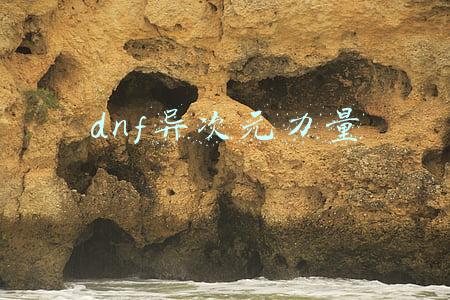 dnf异次元力量